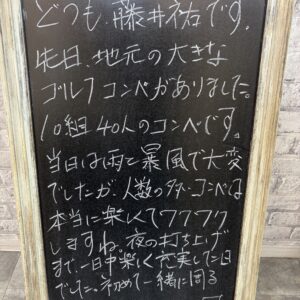 どうも、藤井祐です。
先日、地元の大きな
ゴルフコンペがありました。
10組40人のコンペです。
当日は雨と暴風で大変
でしたが人数の多いコンペは
本当に楽しくてワクワク
しますね。夜の打ち上げ
まで一日中楽しく充実した日
でした。初めて一緒に周る